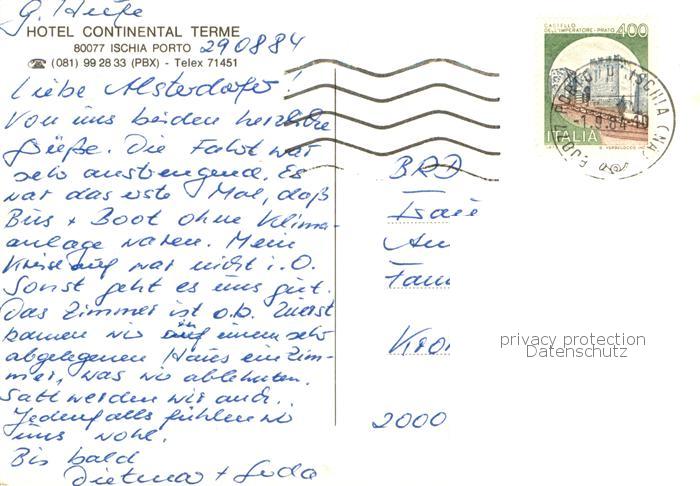 HOTEL CONTINENTAL TERME
80077 ISCHIA PORTO 290884
☎ (081) 99 28 33 (PBX) - Telex 71451
Liebe Alsterdorfer!
Von uns beiden herzliche
Grüße. Die Fahrt war
sehr anstrengend. Es
war das erste Mal, daß
Bus + Boot ohne Klima-
anlage waren. Mein
Kreislauf war nicht i.O.
Sonst geht es uns gut.
Das Zimmer ist o.k. Zuerst
kamen wir in einem sehr
abgelegenen Haus ein Zim-
mer, was wir ablehnten.
Satt werden wir auch.
Jedenfalls fühlen wir
uns wohl.
Bis bald
Dietmar +
CASTELLO
DELL'IMPERATORE - PRATO 400
ITALIA
ISCHIA (NA)
-1.9.84-10
BRD
An
Fam
2000
privacy protection
Datenschutz